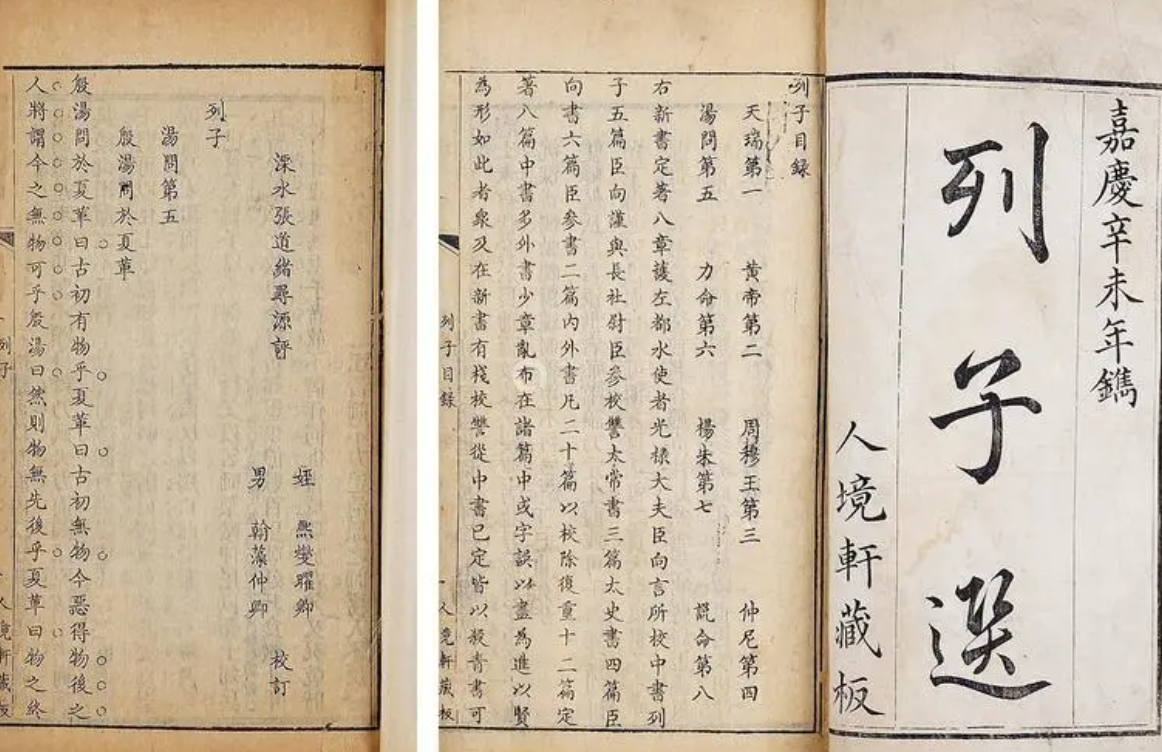 嘉慶辛未年鐫
列子選
人境軒藏板
列子目録
天瑞第一 黄帝第二 周穆王第三 仲尼第四
湯問第五 力命第六 楊朱第七 説命第八
右新書定著八章護左都水使者光禄大夫臣向言所校中書列
子五篇臣向謹與長社尉臣參校讐太常書三篇太史書四篇臣
向書六篇臣参書二篇内外書凡二十篇以校除復重十二篇定
著八篇中書多外書少章亂布在諸篇中或字誤以盡為進以賢
為形如此者衆及在新書有棧校讐從中書已定皆以殺青書可
列子目録 人境軒藏板
溧水張道緒尋源評
姪 煕燮曜卿
男 翰藻仲卿
校訂
列子
湯問第五
殷湯問於夏革
殷湯問於夏革曰古初有物乎夏革曰古初無物今惡得物後之
人將謂今之無物可乎殷湯曰然則物無先後乎夏革曰物之終
列子 人境軒藏板